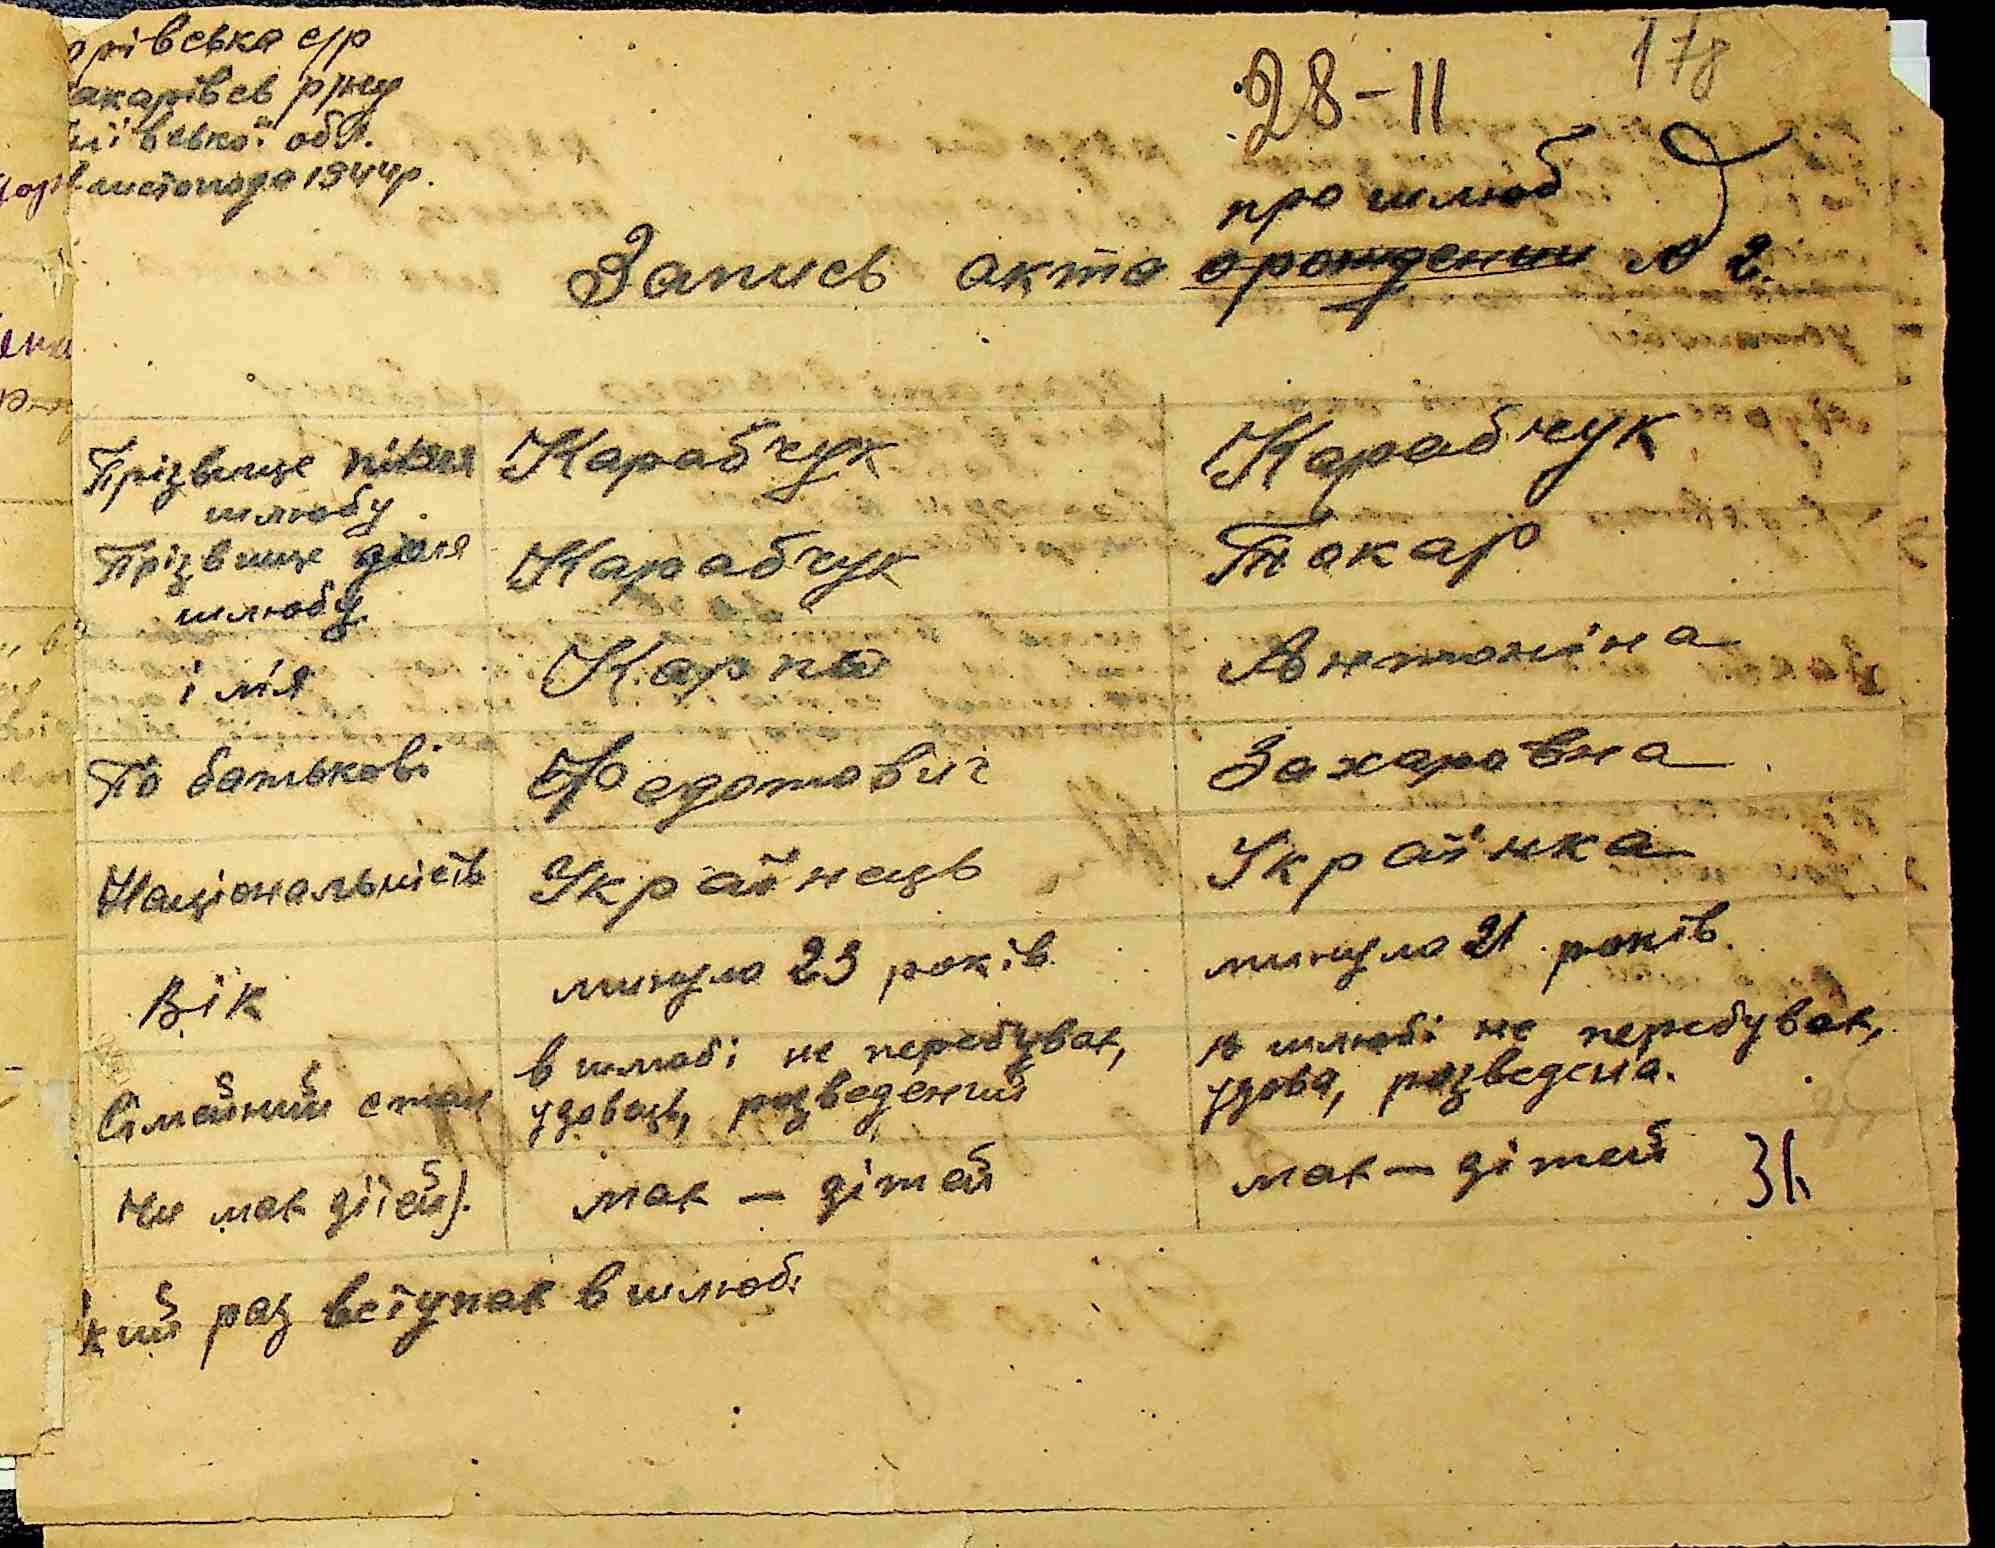 рівська с/р
акарівсв р/ну
ївської обл.
листопада 1944р.
28-11
178
про шлюб
Запись акта о рождении № 2.
Прізвище після шлюбу
Карабчук
Карабчук
Прізвище до шлюбу
Карабчук
Токар
імія
Карпо
Антоніна
По батькові
Федотович
Захаровна
Національність
Українець
Українка
Вік
минуло 23 років
минуло 21 років.
Сімейний стан
в шлюбі не перебував,
удовець, розведений
в шлюбі не перебував,
удова, розведена.
Чи має дітей).
має — дітей
має — дітей
31
кий раз вступає в шлюбі